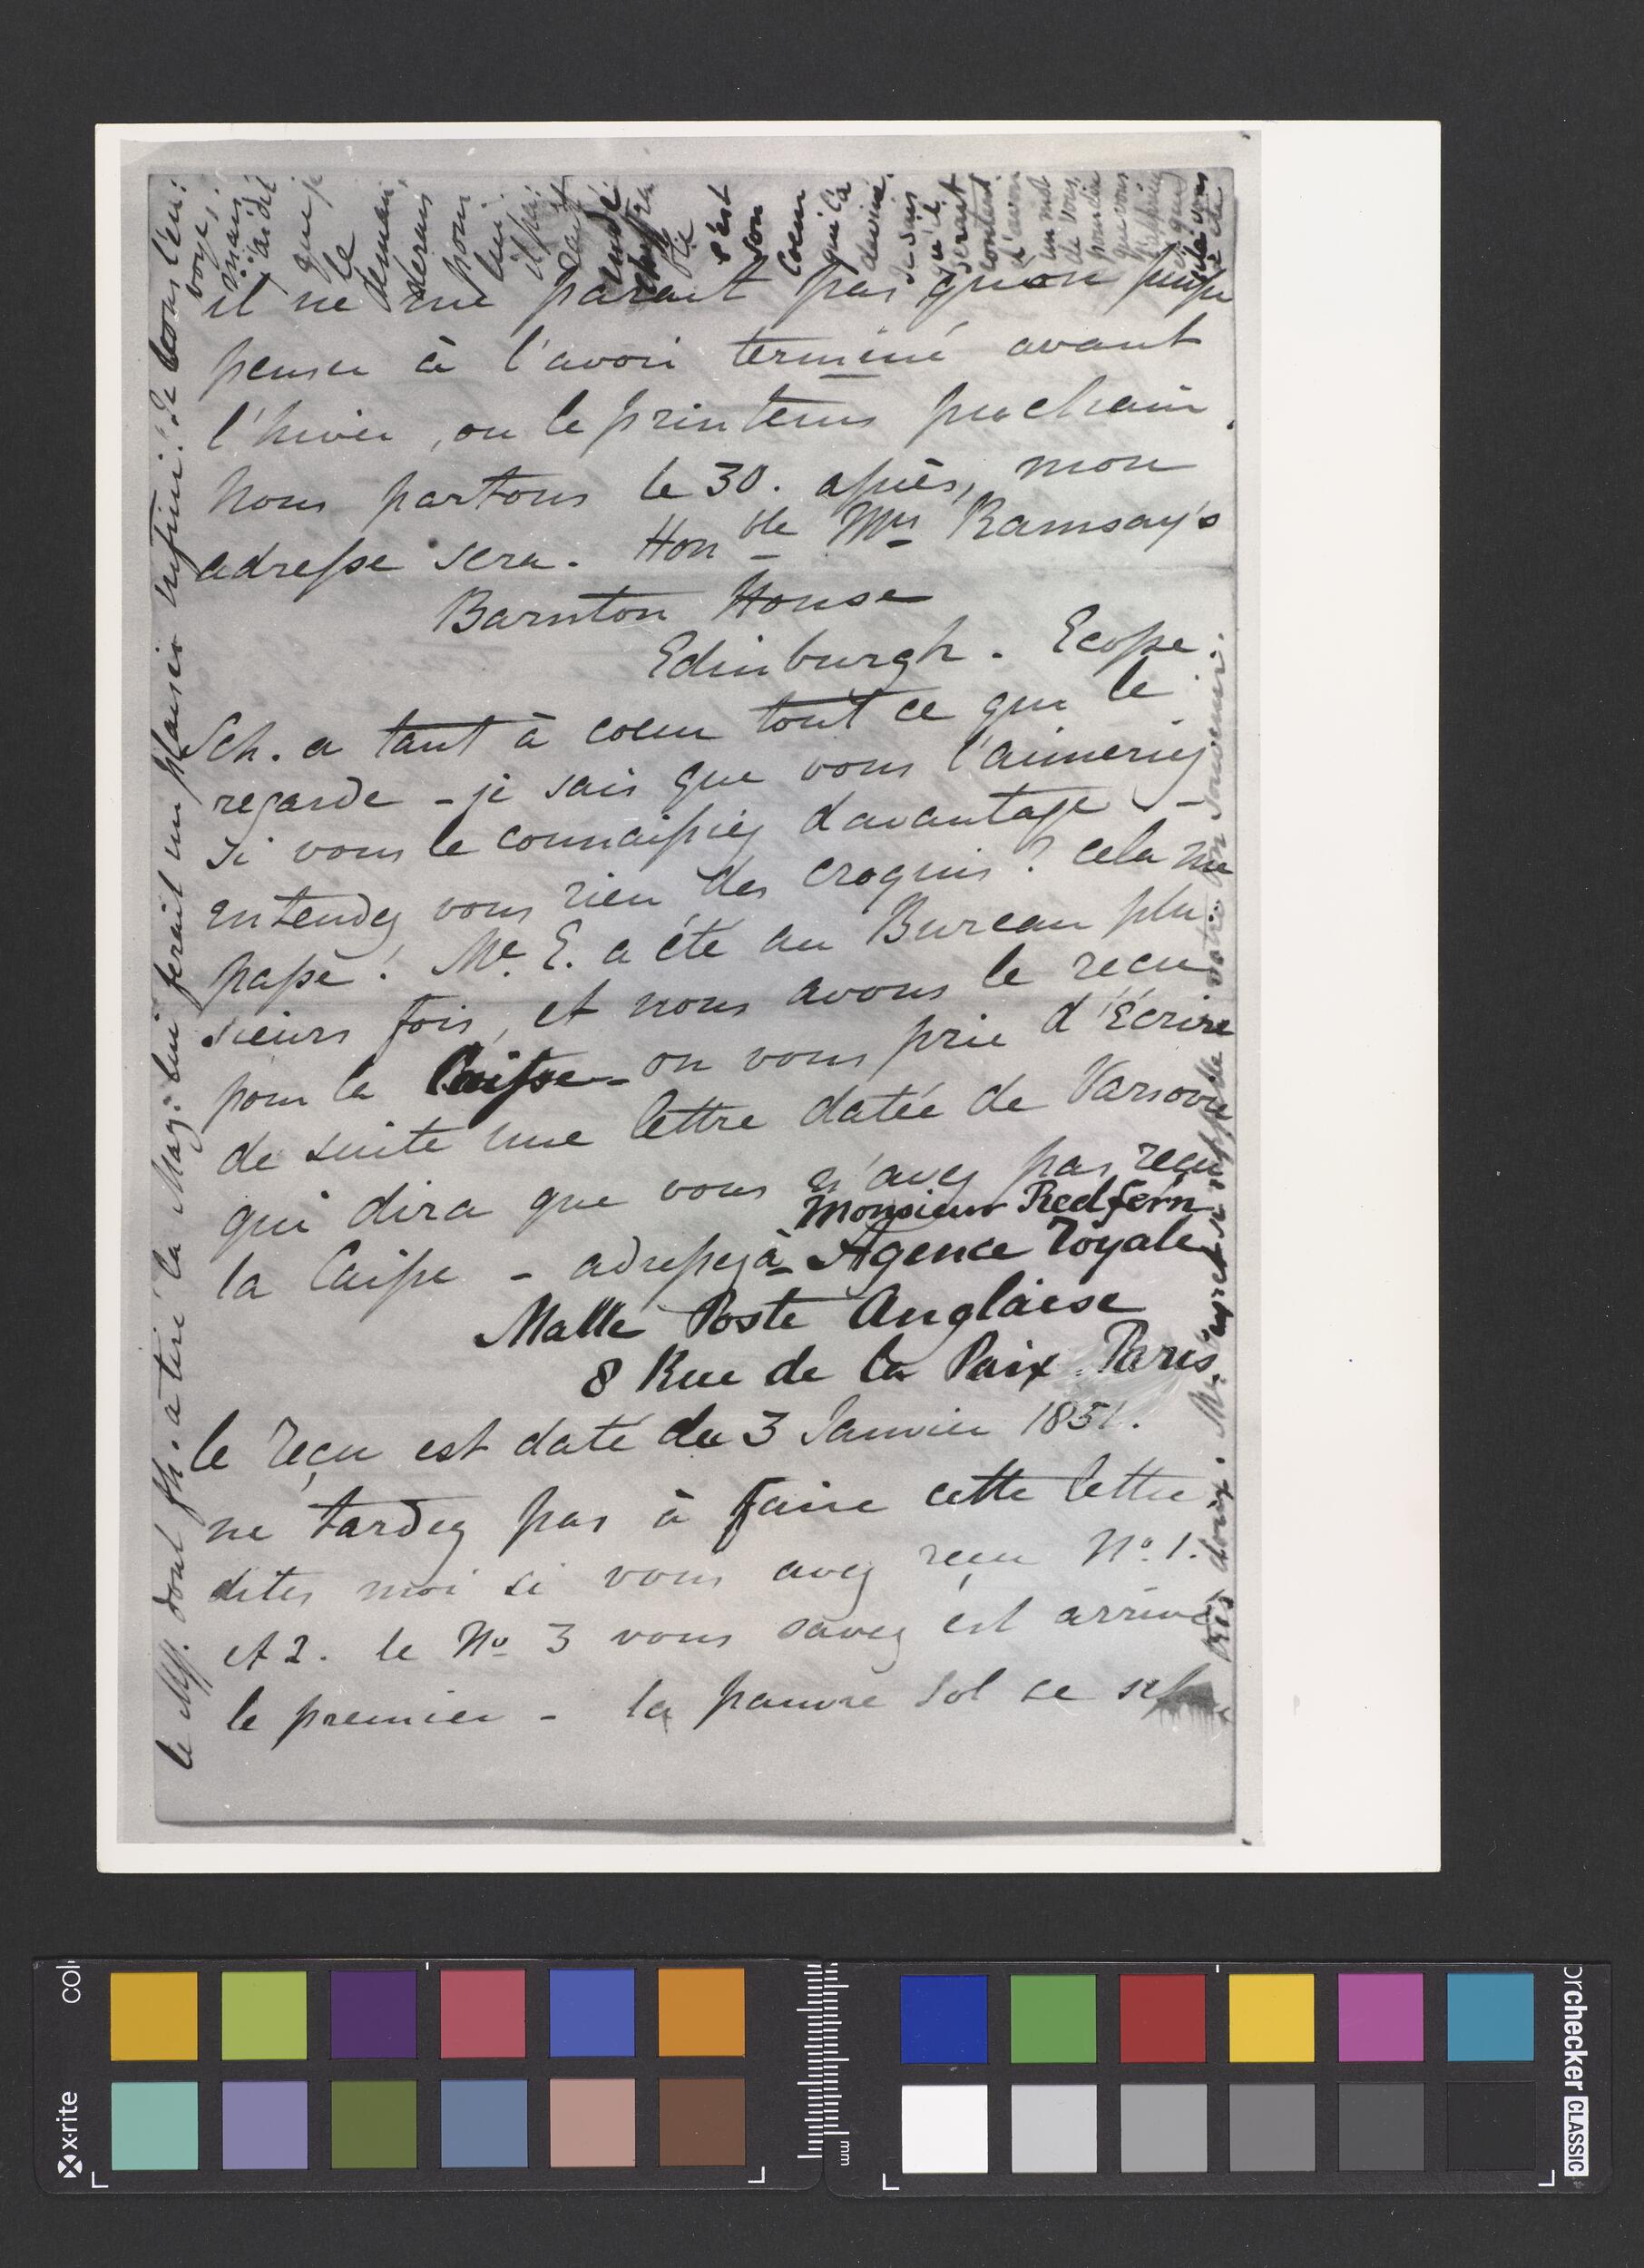 il ne me parait pas qu'on puisse
penser à l'avoir terminé avant
l'hiver, ou le printems prochain.
Nous partons le 30. après, mon
adresse sera. Hon ble Mrs Ramsay's
Barnton House
Edinburgh. Ecosse.
Sch. a tant à coeur tout ce qui le
regarde - je sais que vous l'aimeriez
si vous le connaissiez davantage. -
entendez vous rien des croquis? cela me
passe! Me. E. a été au Bureau plu:
sieurs fois, et nous avons le recu
pour la Caisse - on vous prie d'Écrire
de suite une lettre datée de Varsovie
qui dira que vous n'avez pas reçu
Monsieur Redfern
la Caisse - adressez à Agence Royale
Malle Poste Anglaise
8 Rue de la Paix. Paris.
le reçu est daté du 3 Janvier 1851.
ne tardez pas à faire cette lettre
dites moi si vous avez reçu No. 1.
et 2. le No 3 vous savez est arrivé
le premier - la pauvre Sol se
le dont a tiré la Maz: lui ferait un plaisir infini. Je vous l'en:
voye;
que je
le
deman:
derais
pour
lui
c'est
son
Coeur
qui l'a
deviné.
Je suis
qu'il
serait
content
d'avoir
un mot
de vous,
que vous
doux. votre bon souvenir.
col
x·rite
mm
orchecker CLASSIC